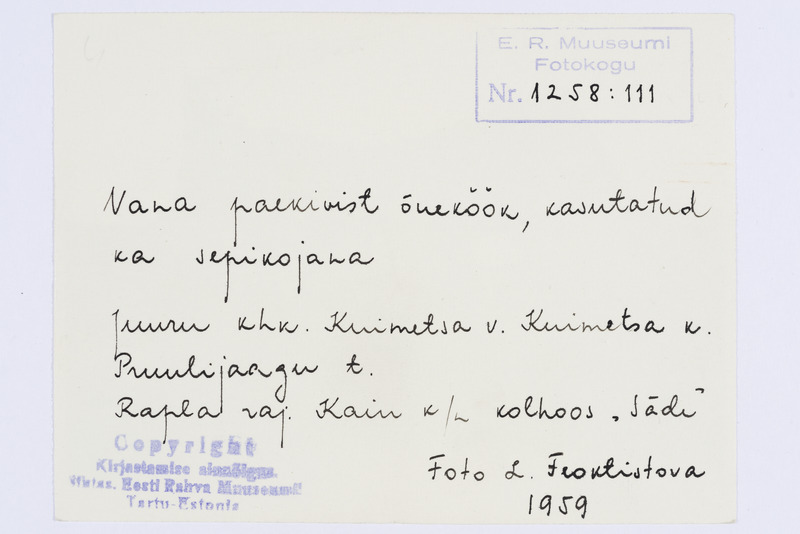 E. R. Muuseumi
Fotokogu
Nr. 1258:111
Vana paekivist õueköök, kasutatud
ka sepikojana
Juuru khk. Kuimetsa v. Kuimetsa k.
Pruulijaagu t.
Rapla raj. Kain k/n kolhoos „Säde"
Copyright
Kirjastamise ainuõigus.
Eesti Rahva Muuseumil
Tartu-Estonia
Foto L. Feoktistova
1959